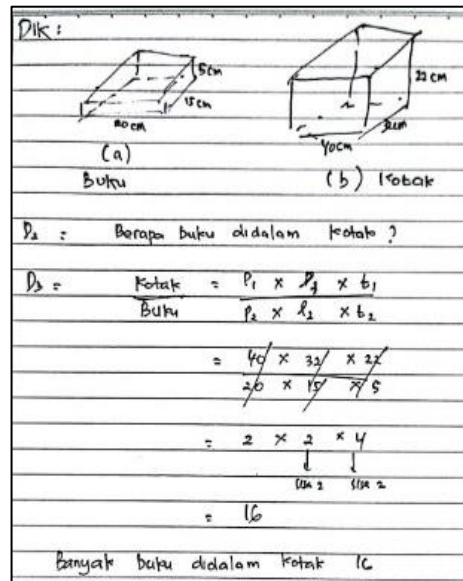 DIK :
5cm
15cm
20cm
22cm
32cm
40cm
(a)
Buku
(b) Kotak
D2 : Berapa buku didalam kotak ?
D3 = Kotak = P1 x l1 x t1
Buku P2 x l2 x t2
= 40 x 32 x 22
20 x 15 x 5
= 2 x 2 x 4
sisa 2 sisa 2
= 16
Banyak buku didalam kotak 16